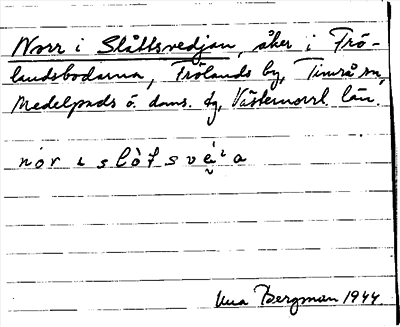 Norr i Slåttsvedjan, åker i Frö-
landsbodarna, Frölands by, Timrå sn,
Medelpads ö. doms. tg, Västernorrl. län.
nór ɩ slòt s vé̬ i a
Bergman 1944.